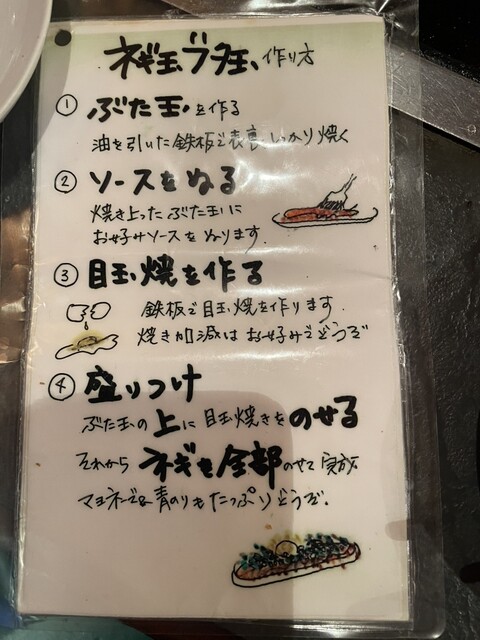 ネギ玉ブタ玉 作り方
① ぶた玉を作る
油を引いた鉄板で表裏しっかり焼く
② ソースをぬる
焼き上ったぶた玉に
お好みソースをぬります。
③ 目玉焼を作る
鉄板で目玉焼を作ります.
焼き加減はお好みでどうぞ
④ 盛りつけ
ぶた玉の上に目玉焼きをのせる
それからネギを全部のせて完成
マヨネーズ&青のりもたっぷりどうぞ.